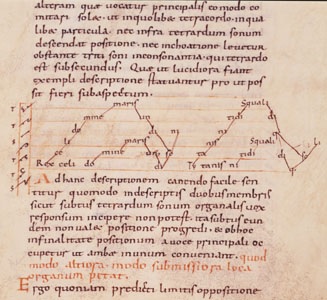 alteram quae vocatur principalis comodo co
mitari solae, ut inquolibet tetracordo inqua
libet particula, nec infra tetrardum sonum
descendat positione, nec inchoatione levetur
obstante triti soni inconsonantia, qui tetrardo
est subsecundus. Quae ut lucidiora fiant
exempli descriptione statuantur pro ut pos
sit fieri subaspectum.
maris
Squali
mine
un
di
do
ni
ti
di
Squali
li
mine
maris
un
di
Rex celi do
Ti tanis ni
tidi
Ad hanc descriptionem canendo facile sen
titur quomodo indescriptis duobus membris
sicut subtus tetrardum sonum organalis vox
responsum incipere non potest, ita subtus eun
dem non valet positione progredi, & obhoc
infinalitate positionum a voce principali oc
cupetur ut ambae inunum conveniant. quod
modo altiora modo submissiora loca
organum petat.
Ergo quoniam praedicti limitis oppositione